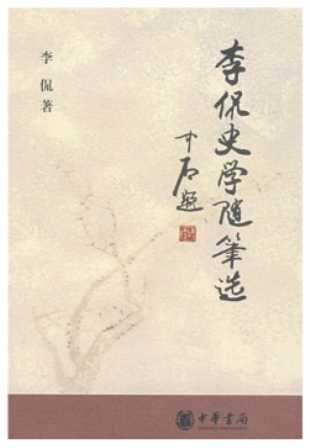 李侃史学随笔选
李侃著
中華書局